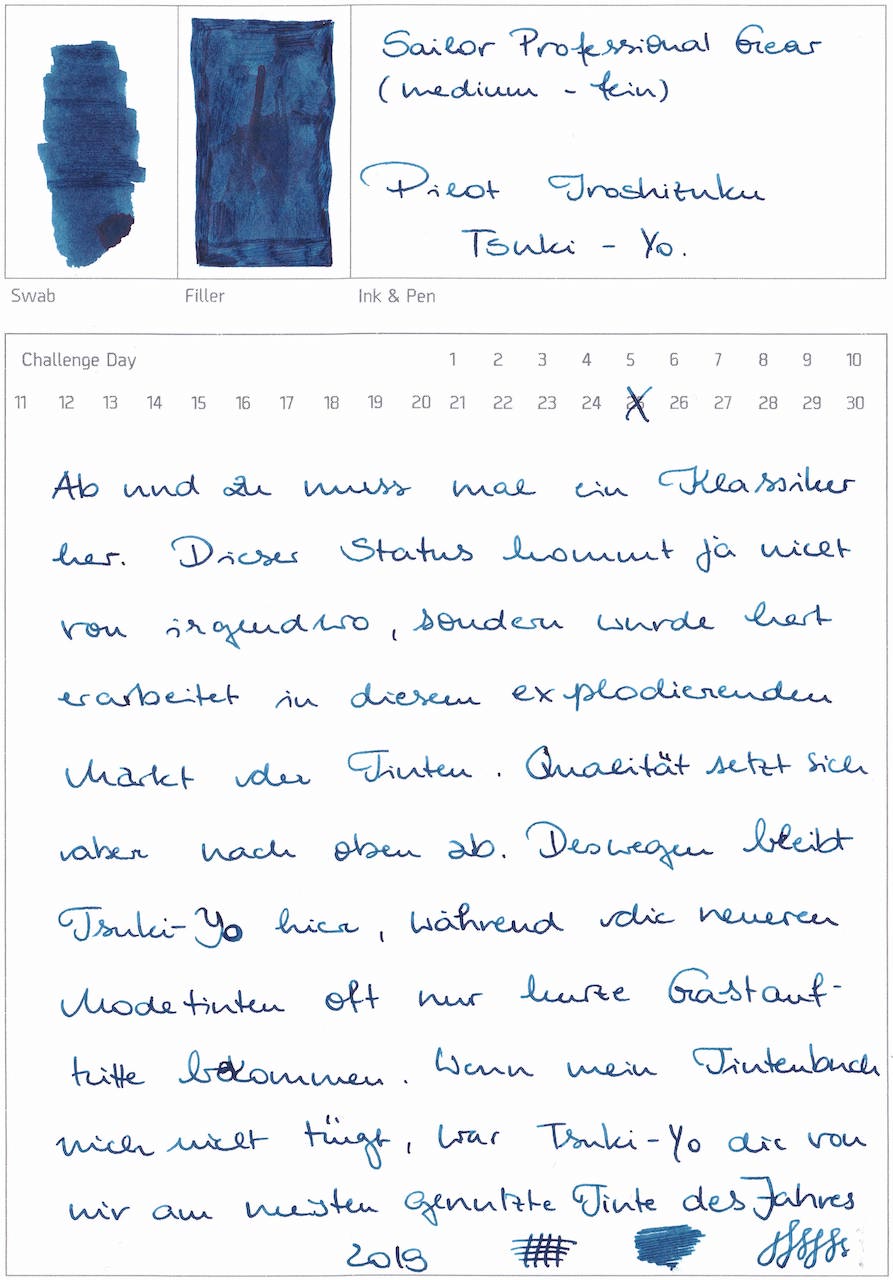 Sailor Professional Gear
(medium - fein)
Pilot Iroshizuku
Tsuki - Yo.
Swab
Filler
Ink & Pen
Challenge Day 1 2 3 4 5 6 7 8 9 10
11 12 13 14 15 16 17 18 19 20 21 22 23 24 25 26 27 28 29 30
Ab und zu muss mal ein Klassiker
her. Dieser Status kommt ja nicht
von irgendwo, sondern wurde hart
erarbeitet in diesem explodierenden
Markt der Tinten. Qualität setzt sich
aber nach oben ab. Deswegen bleibt
Tsuki-Yo hier, während die neueren
Modetinten oft nur kurze Gastauf-
tritte bekommen. Wenn mein Tintenbuch
mich nicht trügt, war Tsuki-Yo die von
mir am meisten genutzte Tinte des Jahres
2019